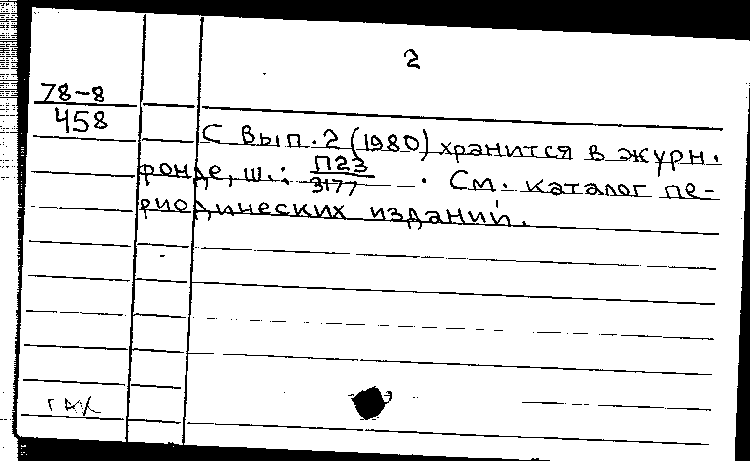 2
78-8
458
С Вып. 2 (1980) хранится в журн.
фонде, ш.: П23
3177 . См. каталог пе-
риодических изданий.